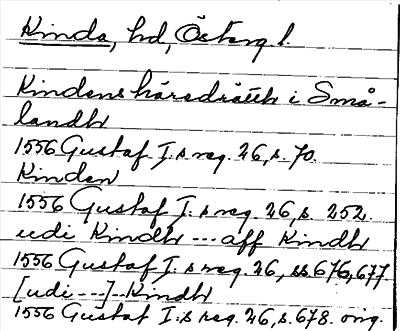 Kinda, hd, Österg l.
Kindens häredzätth i Små-
landh
1556 Gustaf I:s reg. 26, s. 70.
Kinden
1556 Gustaf I:s reg. 26, s. 252.
udi Kindh --- aff Kindh
1556 Gustaf I:s reg. 26, ss. 676, 677
[udi ---] Kindh
1556 Gustaf I:s reg. 26, s. 678. orig.